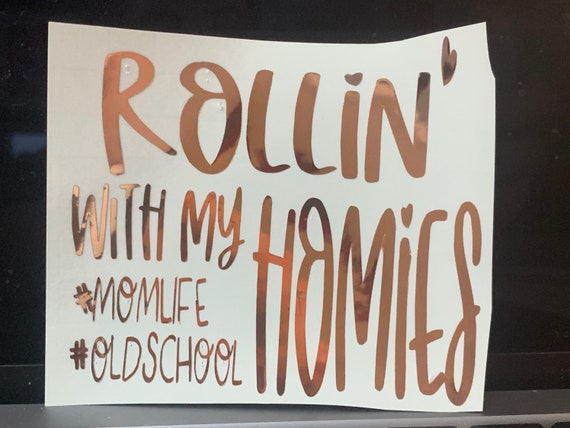 ROLLIN'
WITH MY HOMIES
#MOMLIFE
#OLDSCHOOL